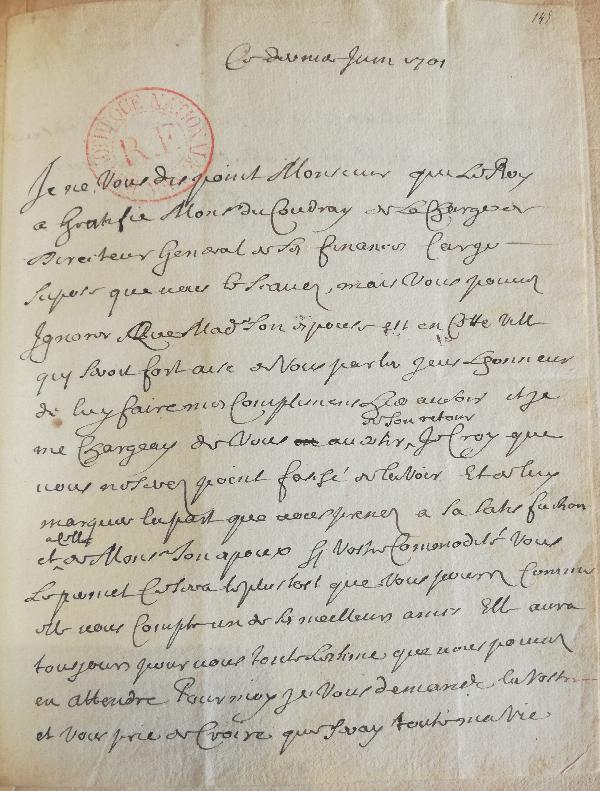 145
Ce dernier Juin 1701
BIBLIOTHEQUE NATIONALE
R.F.
Je ne Vous dis point Monsieur que Le Roy
a Gratifié Monsr Du Coudray de La Charge de
Directeur General de Ses finances Car je
supose que vous le Scauez, mais Vous pouuez
Ignorer Que Made Son Epouse est en Cette Ville
quy Seroit fort aise de Vous parler jeus Lhonneur
de luy faire mes Complimens hier au soir et je
de Son retour
me Chargeay de Vous auertir, Je Croy que
vous ne serez point faché de la Voir Et de luy
marquer la part que vous prenez a sa satisfaction
a elle
et de Monsr Son epoux Sy Vostre Comodité Vous
Le permet Ce sera le plus tost que Vous pourez Comme
elle vous Compte un de Ses meilleurs amis Elle aura
tousjours pour vous toute Lestime que vous pouuez
en attendre Pour moy je Vous demande la Vostre
et Vous prie de Croire que Seray toute ma Vie